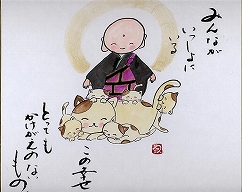 みんなが
いっしょに
いる
この幸せ
とても
かけがえのない
もの